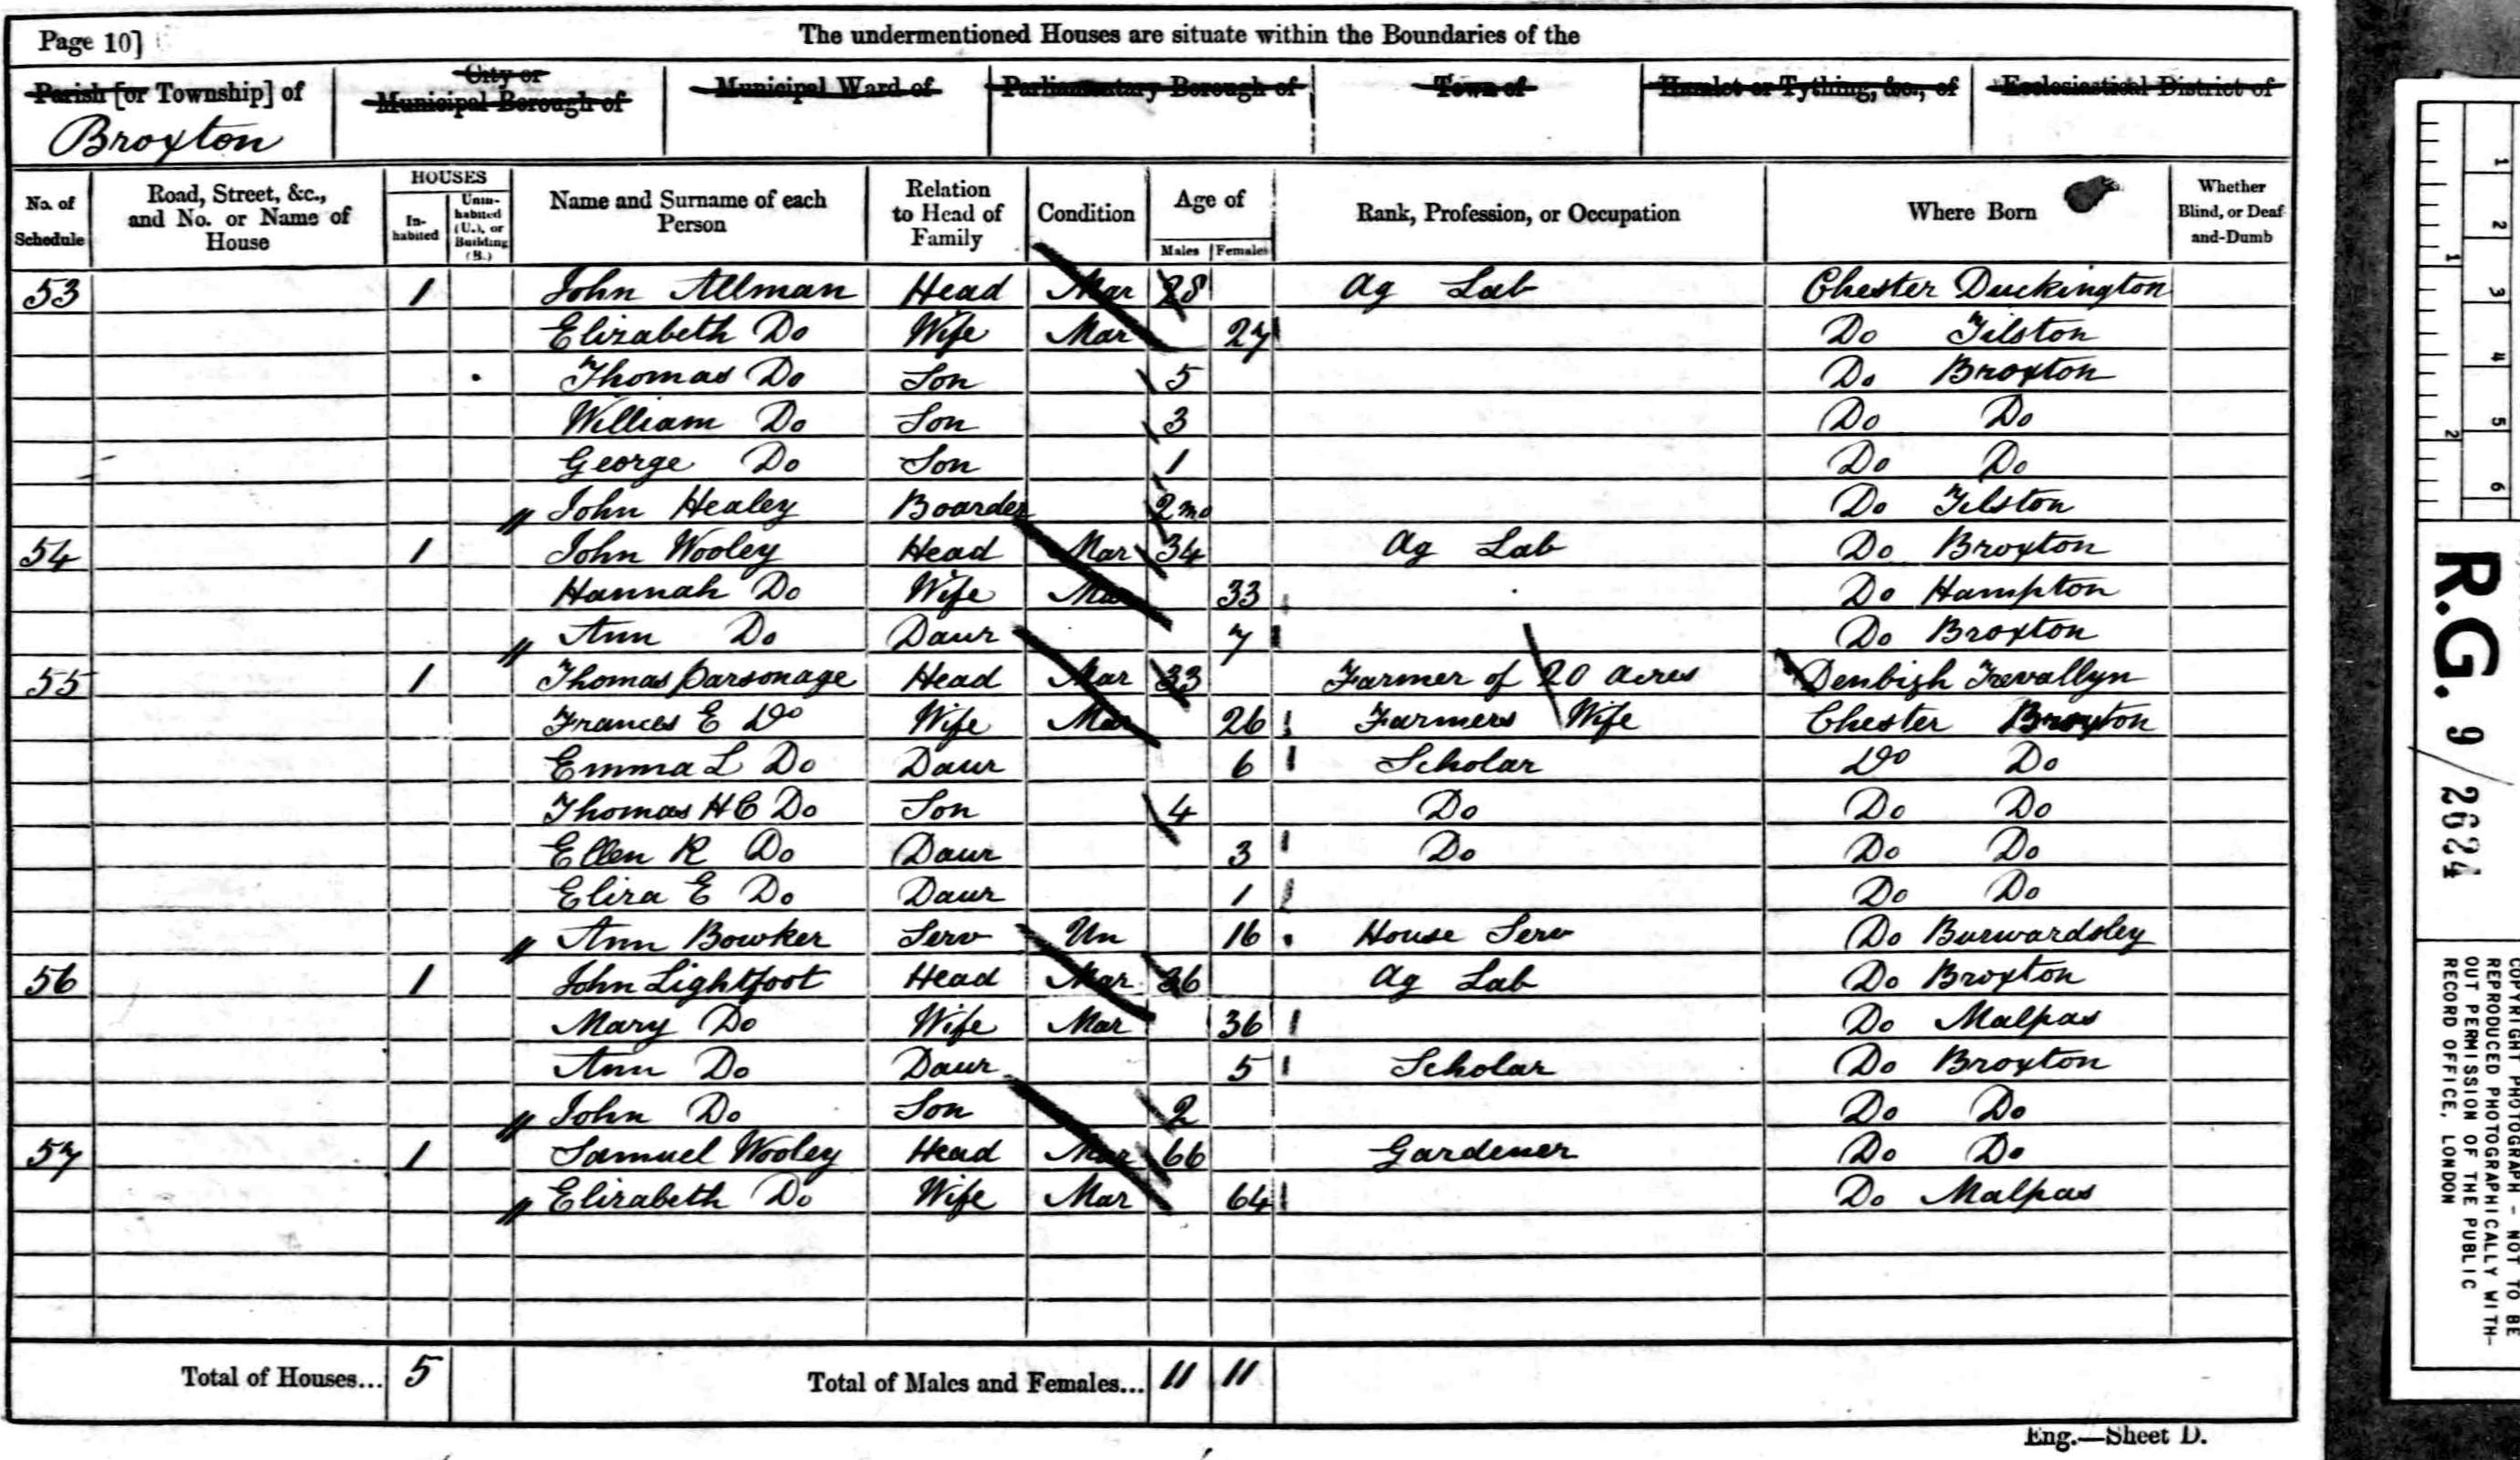 Page 10]
The undermentioned Houses are situate within the Boundaries of the
Parish [or Township] of
City or
Municipal Borough of
Municipal Ward of
Parliamentary Borough of
Town of
Hamlet or Tything, &c., of
Ecclesiastical District of
Broxton
No. of Schedule
Road, Street, &c., and No. or Name of House
HOUSES
In-habited
Unin-habited (U.), or Building (B.)
Name and Surname of each Person
Relation to Head of Family
Condition
Age of
Males Females
Rank, Profession, or Occupation
Where Born
Whether Blind, or Deaf-and-Dumb
53 1 John Allman Head Mar 28 Ag Lab Chester Duckington
Elizabeth Do Wife Mar 27 Do Tilston
Thomas Do Son 5 Do Broxton
William Do Son 3 Do Do
George Do Son 1 Do Do
John Healey Boarder 2 mo Do Tilston
54 1 John Wooley Head Mar 34 Ag Lab Do Broxton
Hannah Do Wife Mar 33 Do Hampton
Ann Do Daur 7 Do Broxton
55 1 Thomas Parsonage Head Mar 33 Farmer of 20 acres Denbigh Trevallyn
Frances E Do Wife Mar 26 Farmers Wife Chester Broxton
Emma L Do Daur 6 Scholar Do Do
Thomas H C Do Son 4 Do Do Do
Ellen R Do Daur 3 Do Do Do
Eliza E Do Daur 1 Do Do
Ann Bowker Serv Un 16 House Serv Do Burwardsley
56 1 John Lightfoot Head Mar 36 Ag Lab Do Broxton
Mary Do Wife Mar 36 Do Malpas
Ann Do Daur 5 Scholar Do Broxton
John Do Son 2 Do Do
57 1 Samuel Wooley Head Mar 66 Gardener Do Do
Elizabeth Do Wife Mar 64 Do Malpas
Total of Houses... 5 Total of Males and Females... 11 11
Eng.—Sheet D.
1 2 3 4 5 6
1 2
R.G. 9/2624
COPYRIGHT PHOTOGRAPH - NOT TO BE
REPRODUCED PHOTOGRAPHICALLY WITH-
OUT PERMISSION OF THE PUBLIC
RECORD OFFICE, LONDON